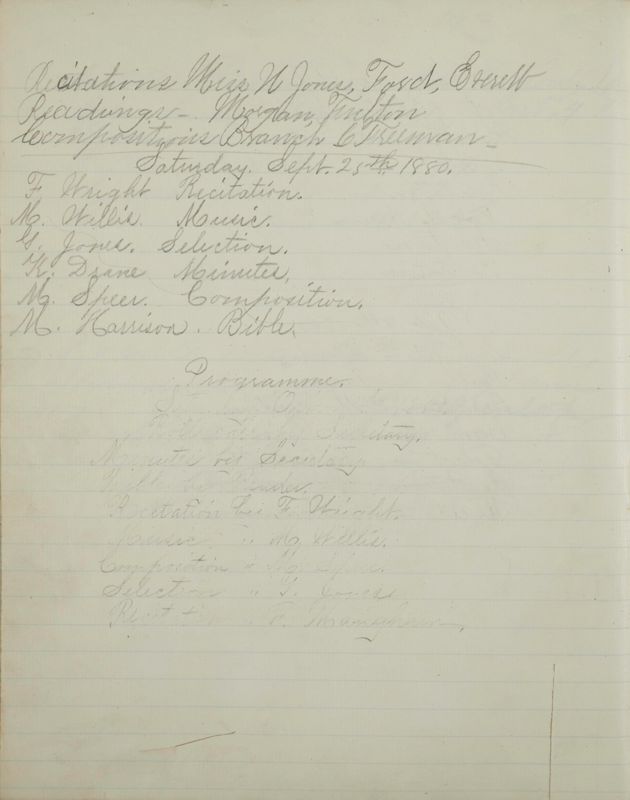 Recitations Miss N Jones, Ford, Everett
Readings - Morgan, Fulton
Compositions Branch & Freeman -
Saturday. Sept. 25th 1880.
F. Wright Recitation.
M. Willis. Music.
G. Jones. Selection.
K. Drane Minutes.
M. Speer. Composition.
M. Harrison. Bible.
Programme.
by Secretary.
Minutes by Secretary
by
Recitation by F. Wright.
Music " M. Willis.
Composition " M.
Selection " G. Jones